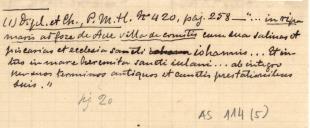 (1) Dipl. et Ch., P. M. H. Nº 420, pág. 258 — "... in ripa
maris ad foze de Ave villa de comitis cum suas salinas et
piscarias et ecclesia sancti iohannis... Et in
tus in mare heremita sancti iuliani... ab integro
per suos terminos antiquos et cunctis prestationibus
suis."
pg 20
AS 114 (5)